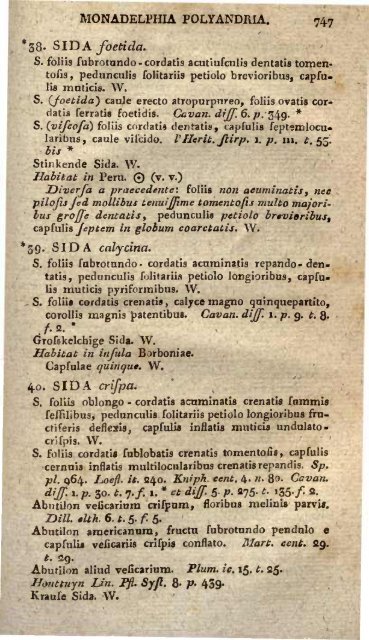 MONADELPHIA POLYANDRIA. 747
*38. SIDA foetida.
S. foliis ſubrotundo-cordatis acutiuſculis dentatis tomen-
toſis, pedunculis ſolitariis petiolo brevioribus, capſu-
lis muticis. W.
S. (foetida) caule erecto atropurpureo, foliis ovatis cor-
datis ſerratis foetidis. Cavan. diſſ. 6. p. 349. *
S. (viſcoſa) foliis cordatis dentatis, capſulis ſeptemlocu-
laribus, caule viſcido. l'Herit. ſtirp. 1. p. 111. t. 53.
bis *
Stinkende Sida. W.
Habitat in Peru. ☉ (v. v.)
Diverſa a praecedente: foliis non acuminatis, nec
piloſis ſed mollibus tenuiſſime tomentoſis multo majori-
bus groſſe dentatis, pedunculis petiolo brevioribus,
capſulis ſeptem in globum coarctatis. W.
*39. SIDA calycina.
S. foliis ſubrotundo-cordatis acuminatis repando-den-
tatis, pedunculis ſolitariis petiolo longioribus, capſu-
lis muticis pyriformibus. W.
S. foliis cordatis crenatis, calyce magno quinquepartito,
corollis magnis patentibus. Cavan. diſſ. 1. p. 9. t. 8.
f. 2. *
Groſskelchige Sida. W.
Habitat in inſula Borboniae.
Capſulae quinque. W.
40. SIDA criſpa.
S. foliis oblongo-cordatis acuminatis crenatis ſummis
ſeſſilibus, pedunculis ſolitariis petiolo longioribus fru-
ctiferis deflexis, capſulis inflatis muticis undulato-
criſpis. W.
S. foliis cordatis ſublobatis crenatis tomentoſis, capſulis
cernuis inflatis multilocularibus crenatis repandis. Sp.
pl. 964. Loefl. it. 240. Kniph. cent. 4. n. 80. Cavan.
diſſ. 1. p. 30. t. 7. f. 1. * et diſſ. 5. p. 275. t. 135. f. 2.
Abutilon veſicarium criſpum, floribus melinis parvis.
Dill. elth. 6. t. 5. f. 5.
Abutilon americanum, fructu ſubrotundo pendulo e
capſulis veſicariis criſpis conflato. Mart. cent. 29.
t. 29.
Abutilon aliud veſicarium. Plum. ic. 15. t. 25.
Houttuyn Lin. Pfl. Syſt. 8. p. 439.
Krauſe Sida. W.